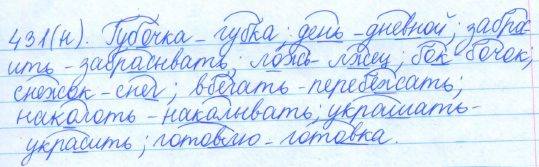 431(н). Губочка - губка; день - дневной; забра-
сить - забрасывать; ложь - лжец; бок - бочок;
снежок - снег; вбегать - перебежать;
наколоть - накалывать; украшать -
украсить; готовлю - готовка.